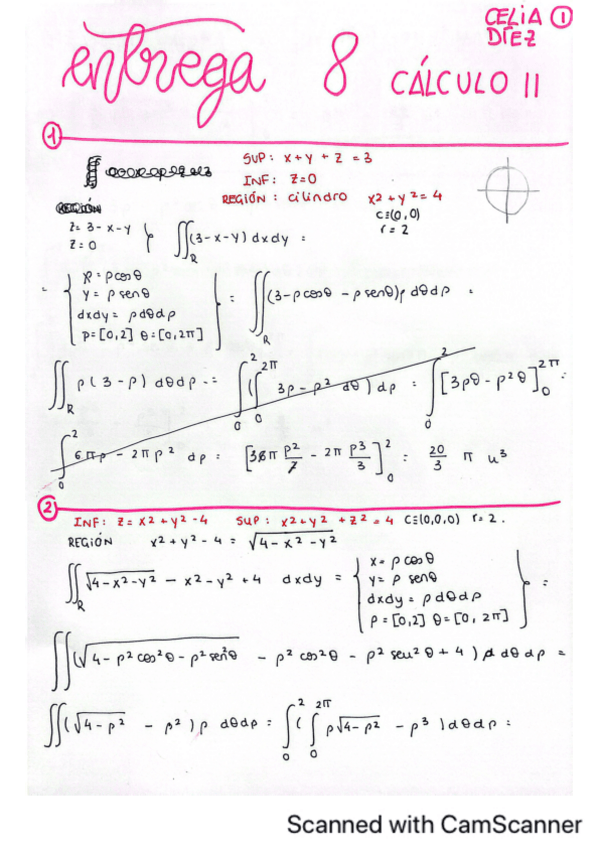 CELIA ①
DÍEZ
entrega 8 CÁLCULO II
①
SUP: x+y+z=3
INF: z=0
REGIÓN: cilindro x2+y2=4
C≡(0,0)
r=2
z=3-x-y
z=0 } ∬R (3-x-y) dxdy =
= { x=ρcosθ
y=ρ senθ
dxdy=ρdθdρ
ρ=[0,2] θ=[0,2π] } = ∬R (3-ρcosθ-ρsenθ)ρ dθdρ =
∬R ρ(3-ρ) dθdρ = ∫0^2 (∫0^2π 3ρ-ρ² dθ) dρ = ∫0^2 [3ρθ-ρ²θ]0^2π =
∫0^2 6πρ-2πρ² dρ = [6π ρ²/2 - 2π ρ3/3]0^2 = 20/3 π u³
②
INF: z=x2+y2-4 SUP: x2+y2+z2=4 C≡(0,0,0) r=2.
REGIÓN x²+y²-4=√4-x²-y²
∬R √4-x²-y² -x²-y²+4 dxdy = { x=ρcosθ
y=ρ senθ
dxdy=ρdθdρ
ρ=[0,2] θ=[0,2π] } =
∬(√4-ρ²cos²θ-ρ²sen²θ -ρ²cos²θ-ρ²sen²θ+4)ρ dθdρ =
∬(√4-ρ² -ρ²)ρ dθdρ = ∫0^2 (∫0^2π ρ√4-ρ2 -ρ³)dθdρ =
Scanned with CamScanner